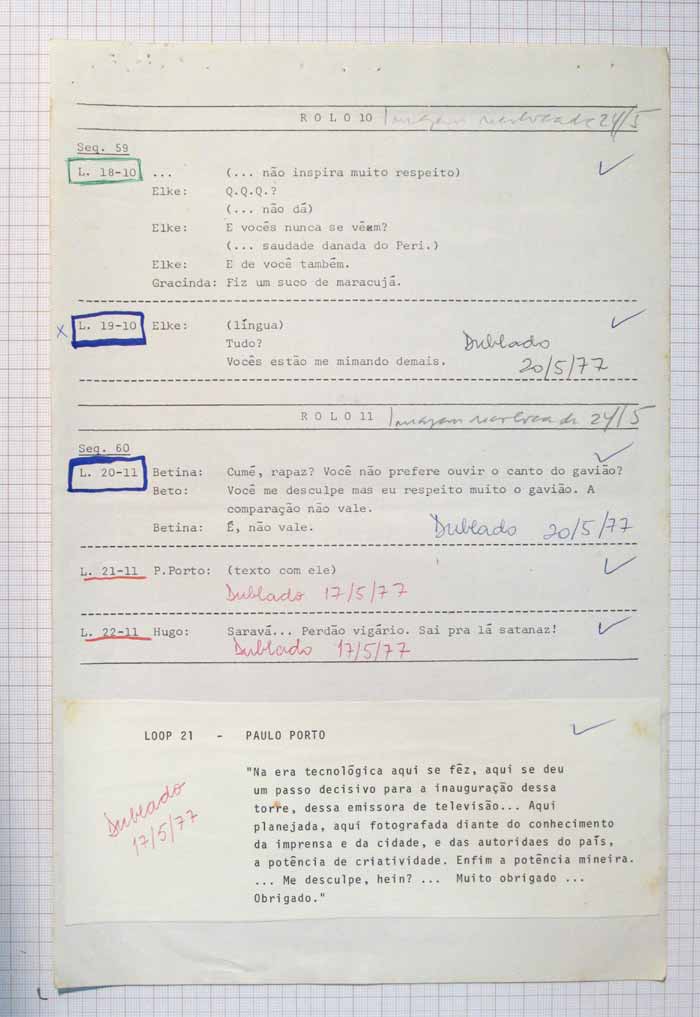 R O L O 10 Imagem 24/5
Seq. 59
L. 18-10 ... (... não inspira muito respeito)
Elke: Q.Q.Q.?
(... não dá)
Elke: E vocês nunca se vêem?
(... saudade danada do Peri.)
Elke: E de você também.
Gracinda: Fiz um suco de maracujá.
x L. 19-10 Elke: (língua)
Tudo? Dublado
Vocês estão me mimando demais. 20/5/77
R O L O 11 Imagem 24/5
Seq. 60
L. 20-11 Betina: Cumé, rapaz? Você não prefere ouvir o canto do gavião?
Beto: Você me desculpe mas eu respeito muito o gavião. A
comparação não vale.
Betina: É, não vale. Dublado 20/5/77
L. 21-11 P.Porto: (texto com ele)
Dublado 17/5/77
L. 22-11 Hugo: Saravá... Perdão vigário. Sai pra lá satanaz!
Dublado 17/5/77
LOOP 21 - PAULO PORTO
"Na era tecnológica aqui se fêz, aqui se deu
um passo decisivo para a inauguração dessa
Dublado torre, dessa emissora de televisão... Aqui
17/5/77 planejada, aqui fotografada diante do conhecimento
da imprensa e da cidade, e das autoridaes do país,
a potência de criatividade. Enfim a potência mineira.
... Me desculpe, hein? ... Muito obrigado ...
Obrigado."